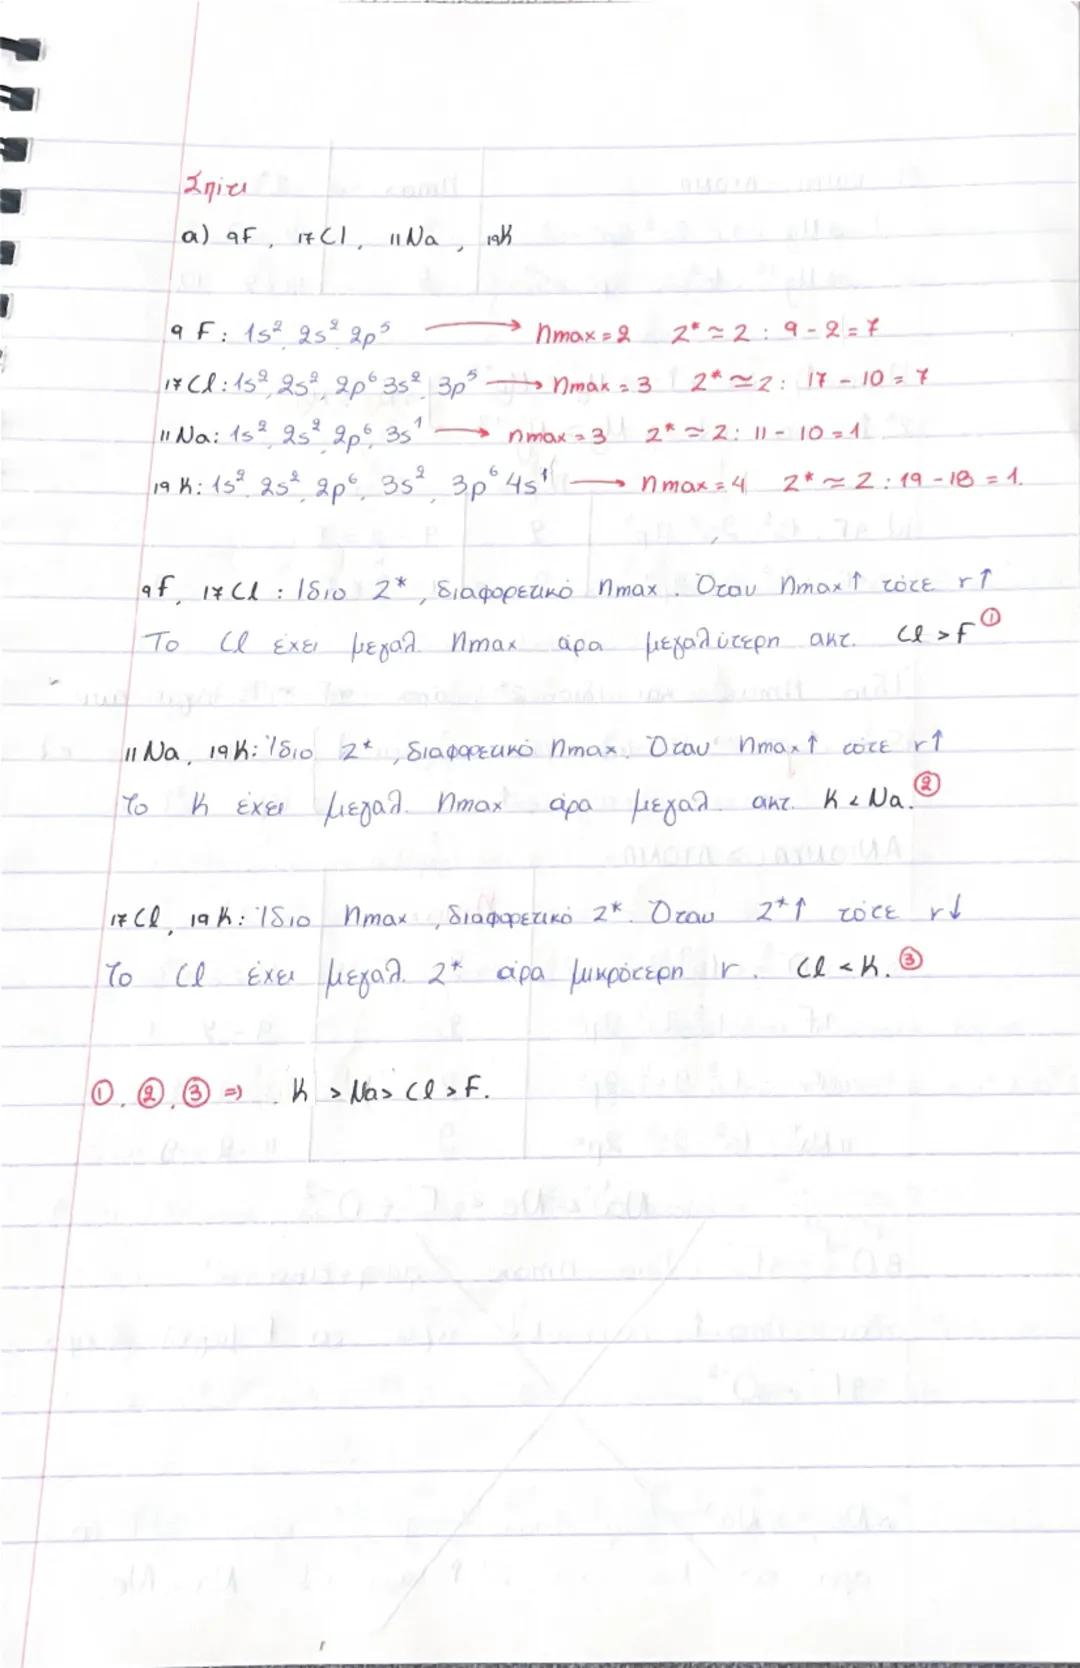 Σπίτι
α) 9F, 17Cl, 11Na, 19K
9F: 1s² 2s² 2p⁵ → nmax = 2 Z* ≃ 2 : 9 - 2 = 7
17Cl: 1s², 2s², 2p⁶ 3s², 3p⁵ → nmax = 3 Z* ≃ 2 : 17 - 10 = 7
11Na: 1s² 2s² 2p⁶, 3s¹ → nmax = 3 Z* ≃ 2 : 11 - 10 = 1
19K: 1s², 2s², 2p⁶, 3s², 3p⁶ 4s¹ → nmax = 4 Z* ≃ 2 : 19 - 18 = 1.
9F, 17Cl : Ίδιο Z*, διαφορετικό nmax. Όταν nmax↑ τότε r↑
Το Cl έχει μεγαλ. nmax άρα μεγαλύτερη ακτ. Cl > F ①
11Na, 19K: Ίδιο Z*, διαφορετικό nmax. Όταν nmax↑ τότε r↑
Το K έχει μεγαλ. nmax άρα μεγαλ. ακτ. K < Na. ②
17Cl, 19K: Ίδιο nmax, διαφορετικό Z*. Όταν Z*↑ τότε r↓
Το Cl έχει μεγαλ. Z* άρα μικρότερη r. Cl < K. ③
①, ②, ③ ⇒ K > Na > Cl > F.